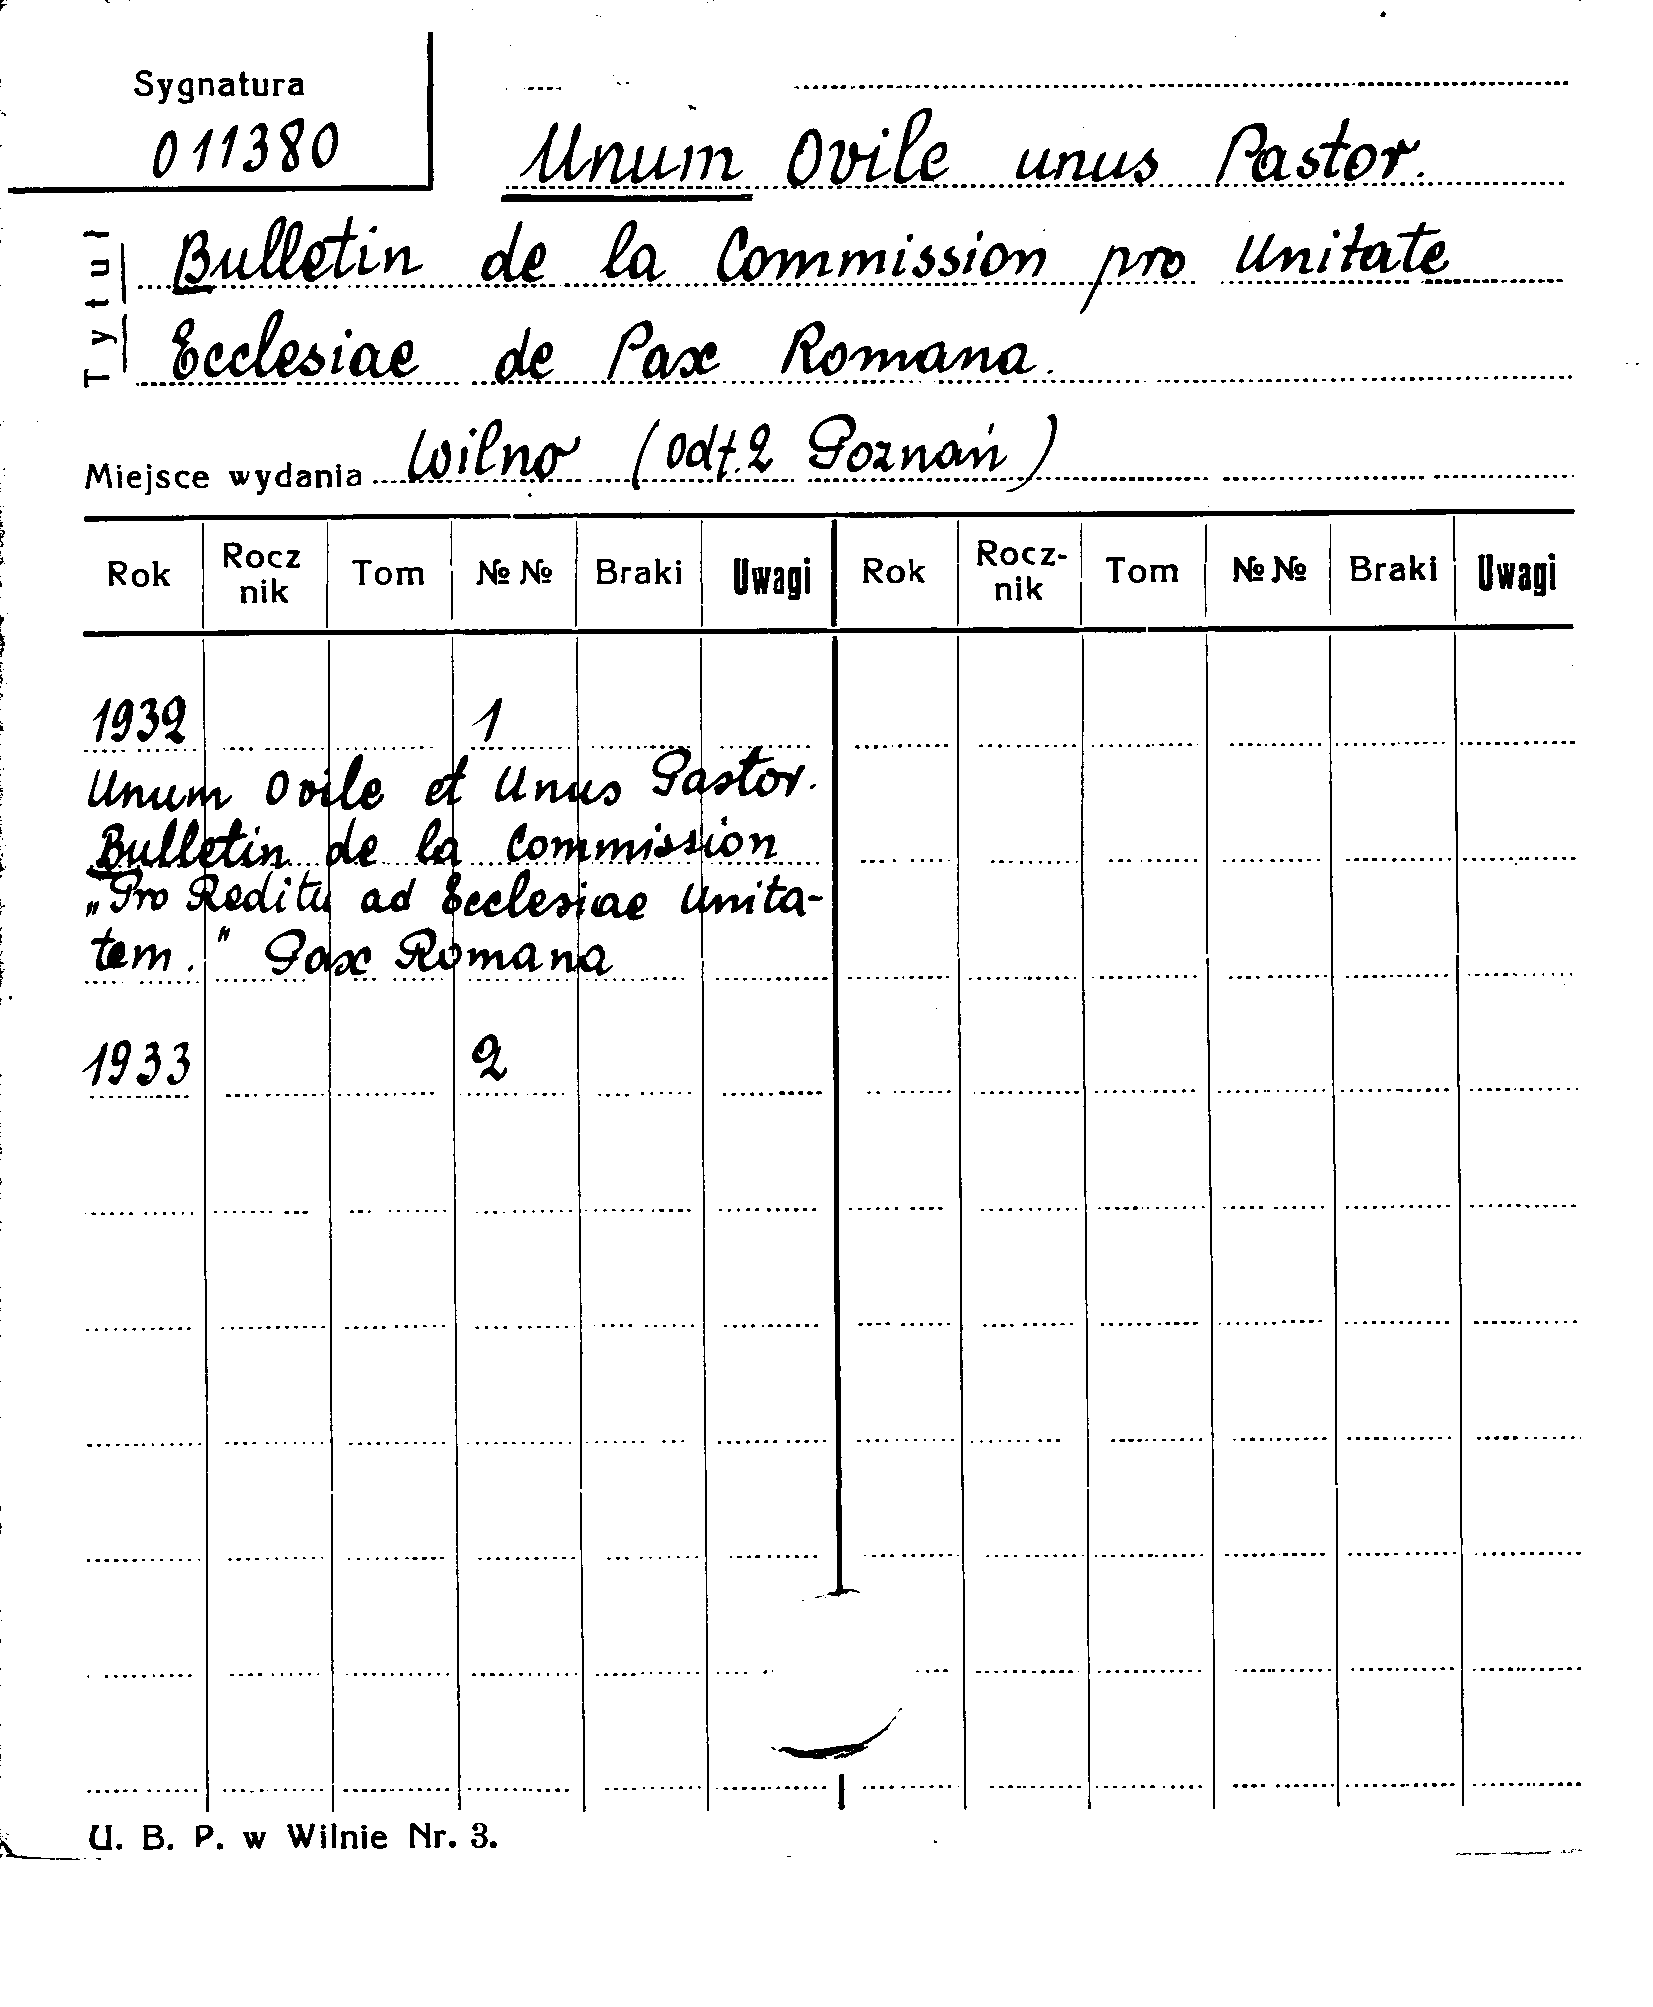 Sygnatura
011380
Unum Ovile unus Pastor.
Tytuł
Bulletin de la Commission pro Unitate
Ecclesiae de Pax Romana.
Miejsce wydania Wilno (odt. 2 Poznań)
Rok Rocz nik Tom №№ Braki Uwagi Rok Rocz- nik Tom №№ Braki Uwagi
1932 1
Unum Ovile et Unus Pastor.
Bulletin de la Commission
„Pro Reditu ad Ecclesiae Unita-
tem." Pax Romana
1933 2
U. B. P. w Wilnie Nr. 3.